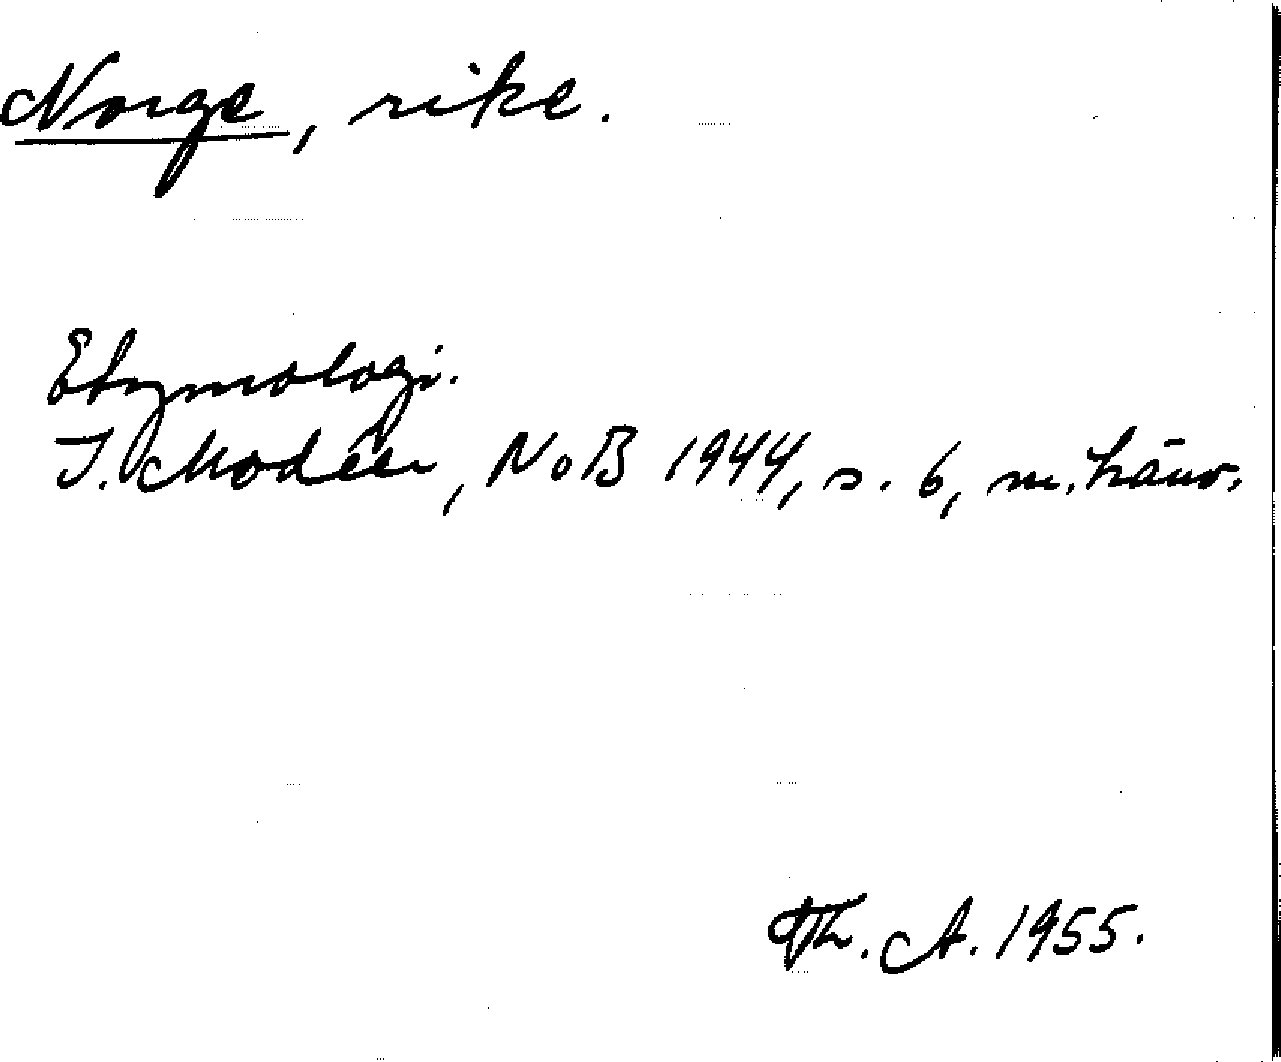 Norge, rike.
Etymologi.
I. Modéer, NoB 1944, s. 6, m. hänv.
Th. A. 1955.